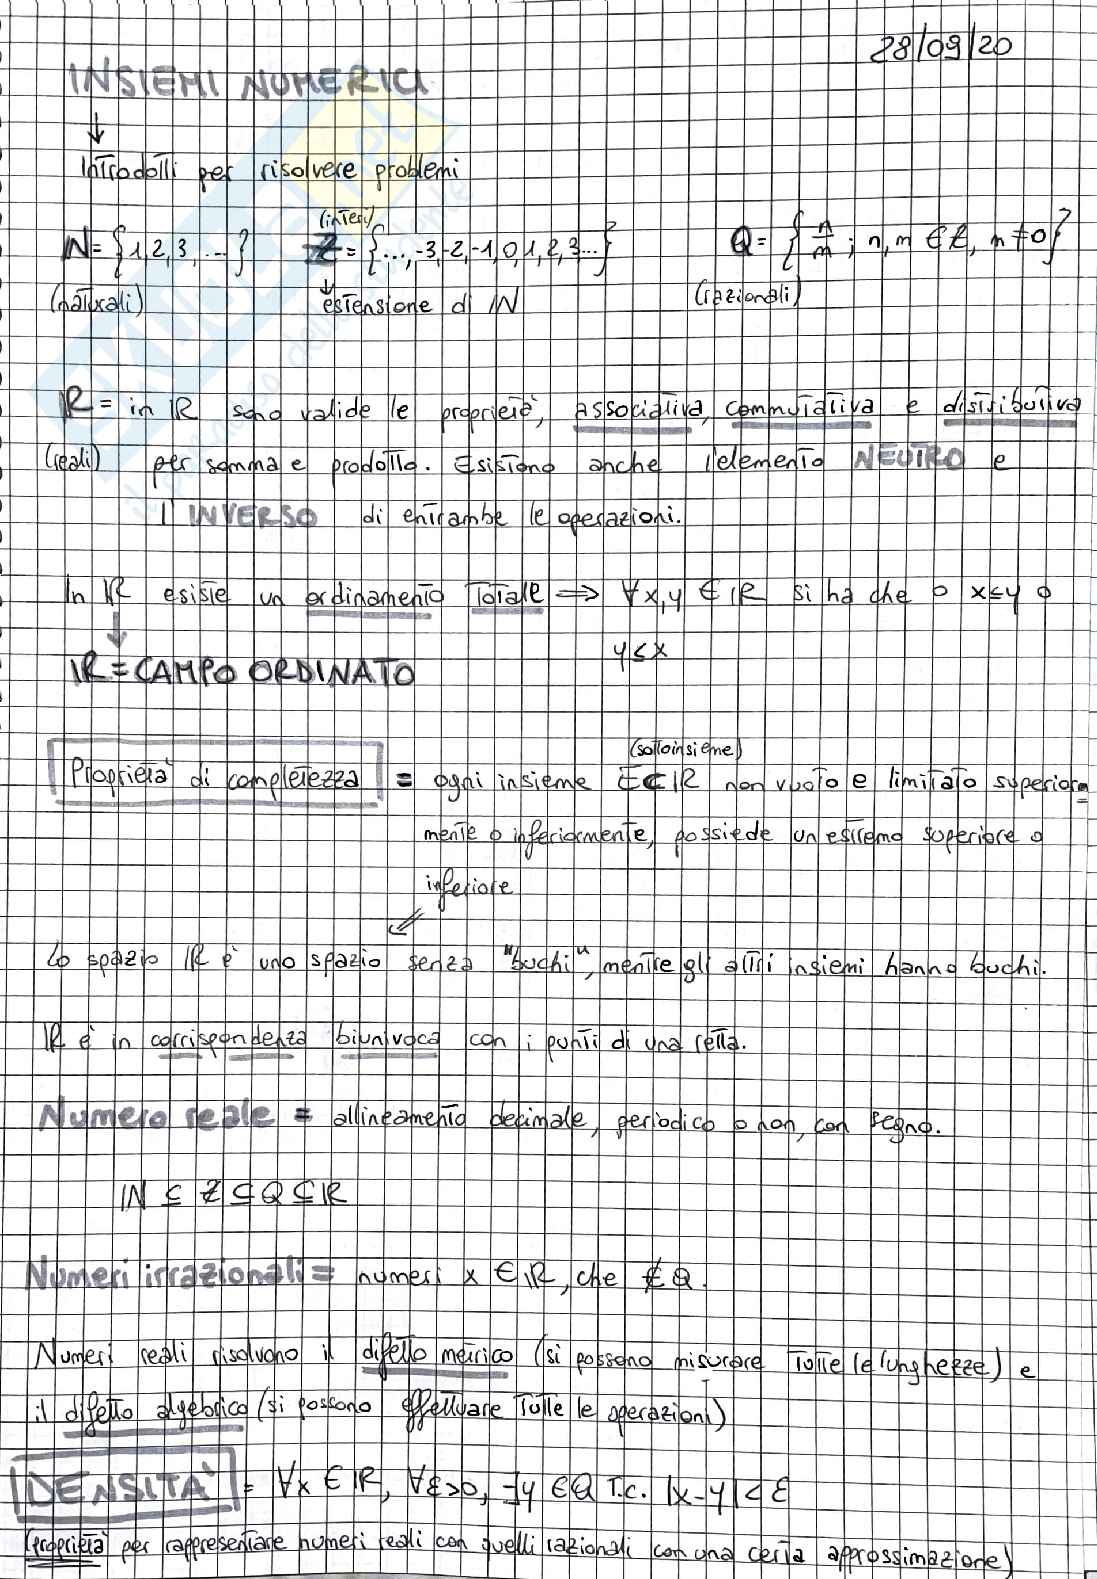 28/09/20
INSIEMI NUMERICI
↓
Introdotti per risolvere problemi
(interi)
ℕ = {1, 2, 3, ....} ℤ = {..., -3, -2, -1, 0, 1, 2, 3...} Q = { n/m ; n, m ∈ ℤ, m ≠ 0 }
(naturali) estensione di ℕ (razionali)
ℝ = in ℝ sono valide le proprietà, associativa, commutativa e distributiva
(reali) per somma e prodotto. Esistono anche l'elemento NEUTRO e
l'INVERSO di entrambe le operazioni.
In ℝ esiste un ordinamento totale ⟹ ∀x,y ∈ ℝ si ha che o x≤y o
y≤x
ℝ = CAMPO ORDINATO
(sottoinsieme)
Proprietà di completezza = ogni insieme E⊂ℝ non vuoto e limitato superior-
mente o inferiormente, possiede un estremo superiore o
inferiore
Lo spazio ℝ è uno spazio senza "buchi", mentre gli altri insiemi hanno buchi.
ℝ è in corrispondenza biunivoca con i punti di una retta.
Numero reale = allineamento decimale, periodico o non, con segno.
ℕ ⊆ ℤ ⊆ Q ⊆ ℝ
Numeri irrazionali = numeri x ∈ ℝ, che ∉ Q.
Numeri reali risolvono il difetto metrico (si possono misurare tutte le lunghezze) e
il difetto algebrico (si possono effettuare tutte le operazioni)
DENSITÀ = ∀x ∈ ℝ, ∀ε>0, ∃y ∈ Q T.c. |x-y| < ε
(proprietà per rappresentare numeri reali con quelli razionali con una certa approssimazione)